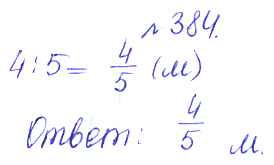 № 384.
4 : 5 = 4/5 (м)
Ответ: 4/5 м.